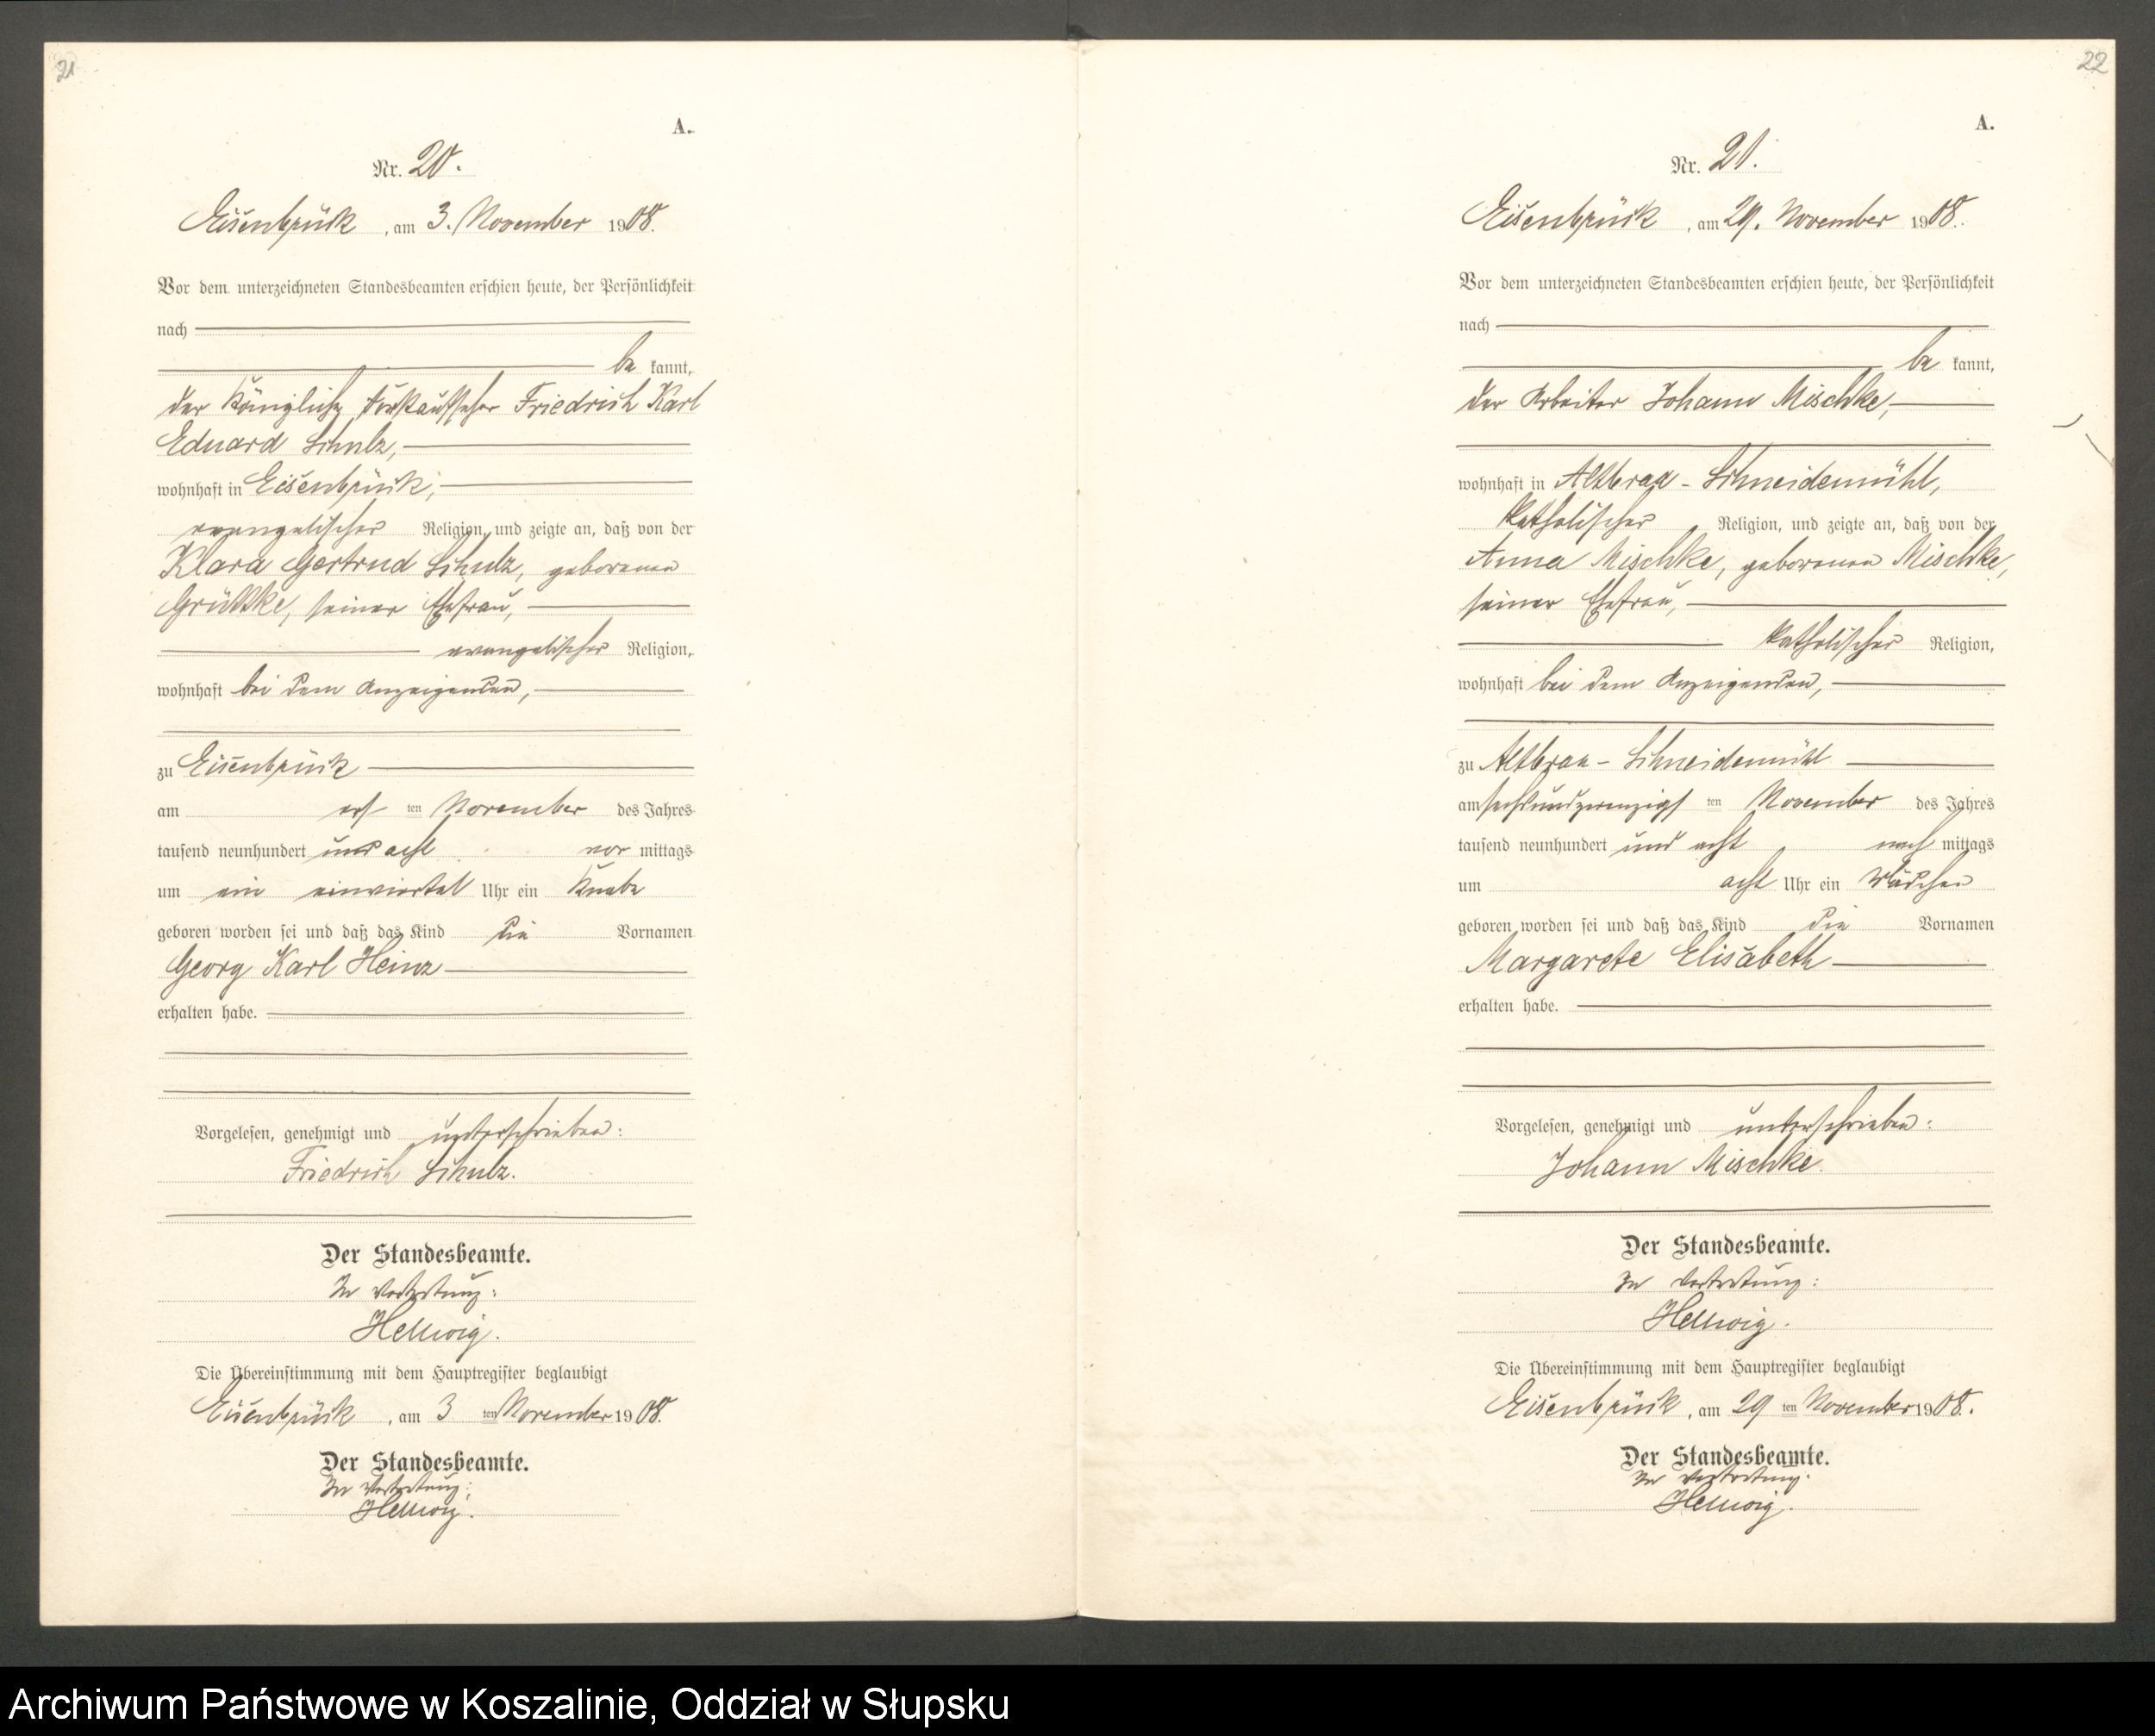 21
A.
Nr. 20.
Eisenbrück, am 3. November 1908.
Vor dem unterzeichneten Standesbeamten erschien heute, der Persönlichkeit
nach
be kannt,
der Königliche Forstaufseher Friedrich Karl
Eduard Schulz,
wohnhaft in Eisenbrück,
evangelischer Religion, und zeigte an, daß von der
Klara Gertrud Schulz, geborenen
Grützke, seiner Ehefrau,
evangelischer Religion,
wohnhaft bei dem Anzeigenden,
zu Eisenbrück
am ersten November des Jahres
tausend neunhundert und acht vor mittags
um ein einviertel Uhr ein Knabe
geboren worden sei und daß das Kind die Vornamen
Georg Karl Heinz
erhalten habe.
Vorgelesen, genehmigt und unterschrieben:
Friedrich Schulz.
Der Standesbeamte.
In Vertretung:
Hellwig.
Die Übereinstimmung mit dem Hauptregister beglaubigt
Eisenbrück, am 3 ten November 1908.
Der Standesbeamte.
In Vertretung:
Hellwig.
22
A.
Nr. 21.
Eisenbrück, am 29. November 1908.
Vor dem unterzeichneten Standesbeamten erschien heute, der Persönlichkeit
nach
be kannt,
der Arbeiter Johann Mischke,
wohnhaft in Altbraa - Schneidemühl,
katholischer Religion, und zeigte an, daß von der
Anna Mischke, geborenen Mischke,
seiner Ehefrau,
katholischer Religion,
wohnhaft bei dem Anzeigenden,
zu Altbraa - Schneidemühl
am sechsundzwanzigsten November des Jahres
tausend neunhundert und acht nach mittags
um acht Uhr ein Mädchen
geboren worden sei und daß das Kind die Vornamen
Margarete Elisabeth
erhalten habe.
Vorgelesen, genehmigt und unterschrieben:
Johann Mischke.
Der Standesbeamte.
In Vertretung:
Hellwig.
Die Übereinstimmung mit dem Hauptregister beglaubigt
Eisenbrück, am 29 ten November 1908.
Der Standesbeamte.
In Vertretung:
Hellwig.
Archiwum Państwowe w Koszalinie, Oddział w Słupsku